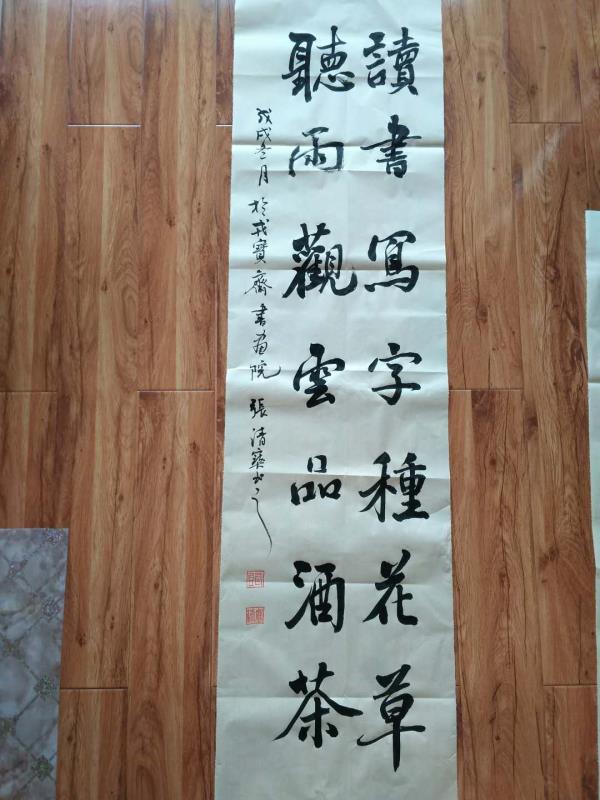 讀書寫字種花草
聽雨觀雲品酒茶
戊戌冬月於戎寶齋書画院張清